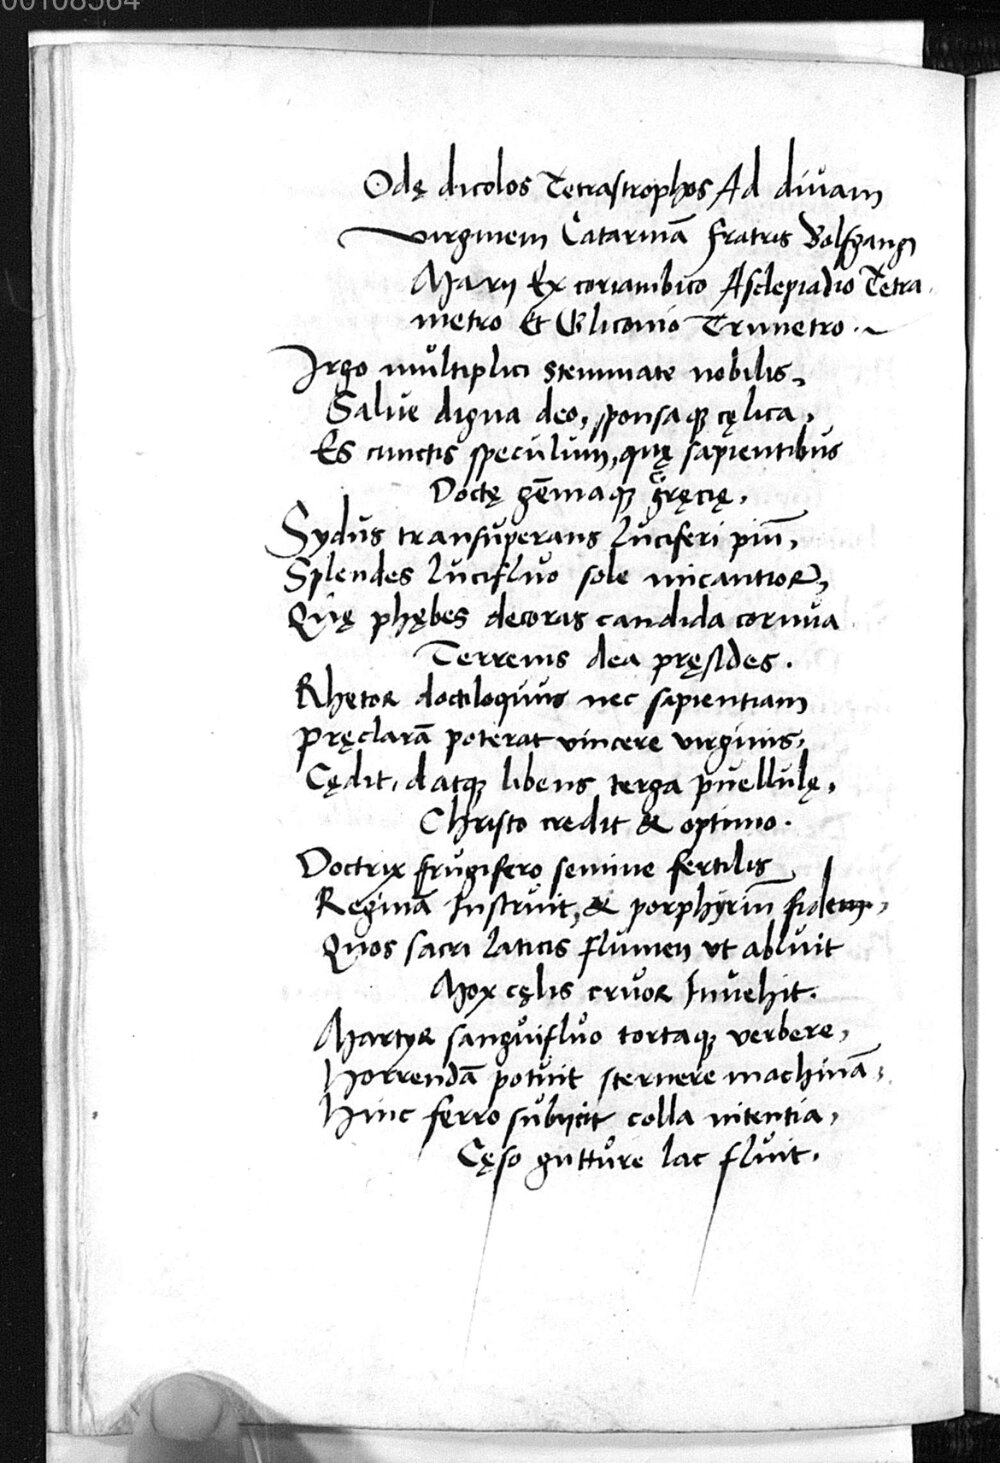 00108564
Odę dicolos Tetrastrophos Ad diuam
virginem Catarinā fratris Volfgang
Marij Ex coriambico Asclepiadio Tetra
metro Et Gliconio Trimetro.
Irgo multiplici stemmate nobilis,
Salue digna deo, sponsaqꝫ cęlica,
Es cunctis speculum, quę sapientibus
Doctę gēmaqꝫ gręcię.
Sydus transuperans luciferi piū,
Splendes lucifluo sole micantior,
Quę phębes decoras candida cornua
Terrenis dea pręsides.
Rhetor doctiloquus nec sapientiam
Pręclarā poterat vincere virginis,
Cędit, datqꝫ libens terga puellulę,
Christo credit & optimo.
Doctrix frugifero semine fertilis
Reginā Instruit, & porphyriū fidem,
Quos sacri laticis flumen vt abluit
Mox cęlis cruor Inuehit.
Martyr sanguifluo tortaqꝫ verbere,
Horrendā potuit sternere machinā,
Hinc ferro subijcit colla nitentia,
Cęso gutture lac fluit.